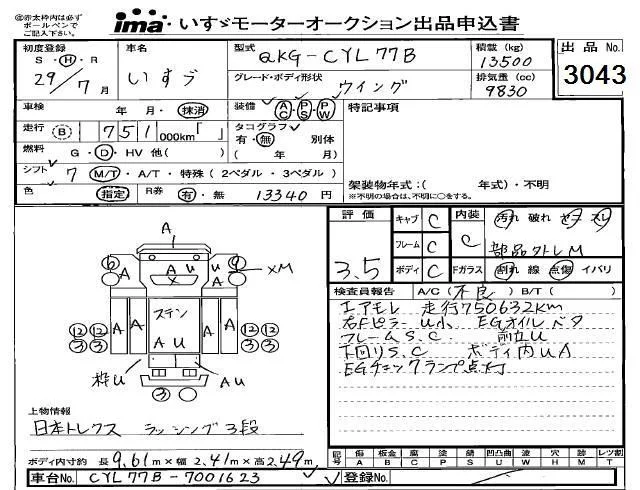 ※赤太枠内は必ず
ボールペンで
ご記入下さい。
ima いすゞモーターオークション出品申込書
初度登録 S・H・R 29/7月
車名 いすゞ
型式 QKG-CYL77B
積載(kg) 13500
出品No. 3043
グレード・ボディ形状 ウイング
排気量(cc) 9830
車検 年 月・抹消
装備 AC・PS・PW
特記事項
走行 B 751,000km「 」
タコグラフ 有・無 別体
( 年 月)
燃料 G・D・HV 他( )
シフト 7 M/T・A/T・特殊(2ペダル・3ペダル)
架装物年式:( 年式)・不明
※不明の場合は、不明に○をする。
色 指定 R券 有・無 13340円
評価 3.5
キャブ C
内装 C
汚れ 破れ セフ スレ
フレーム C
部品外レM
ボディ C
Fガラス 割れ 線 点傷 イバリ
検査員報告 A/C(不良)B/T( )
エアモレ 走行750632km
右Fピラー U小 EGオイルベタ
フレームS.C. 前立U
下回りS.C ボディ内UA
EGチェックランプ点灯
A
⑥ A A U U ⑨ XM
X
ステン
⑫⑫ A A A U A A ⑫⑫
③③ ③③
枠U AU
③
上物情報
日本トレクス ラッシング3段
記号 傷 板金 腐 塗 サビ 凹凸曲 波 穴 跡 レツ割
A B C P S U W H M T
ボディ内寸約 長9.61m×幅2.41m×高2.49m
車台No. CYL77B-7001623
登録No.